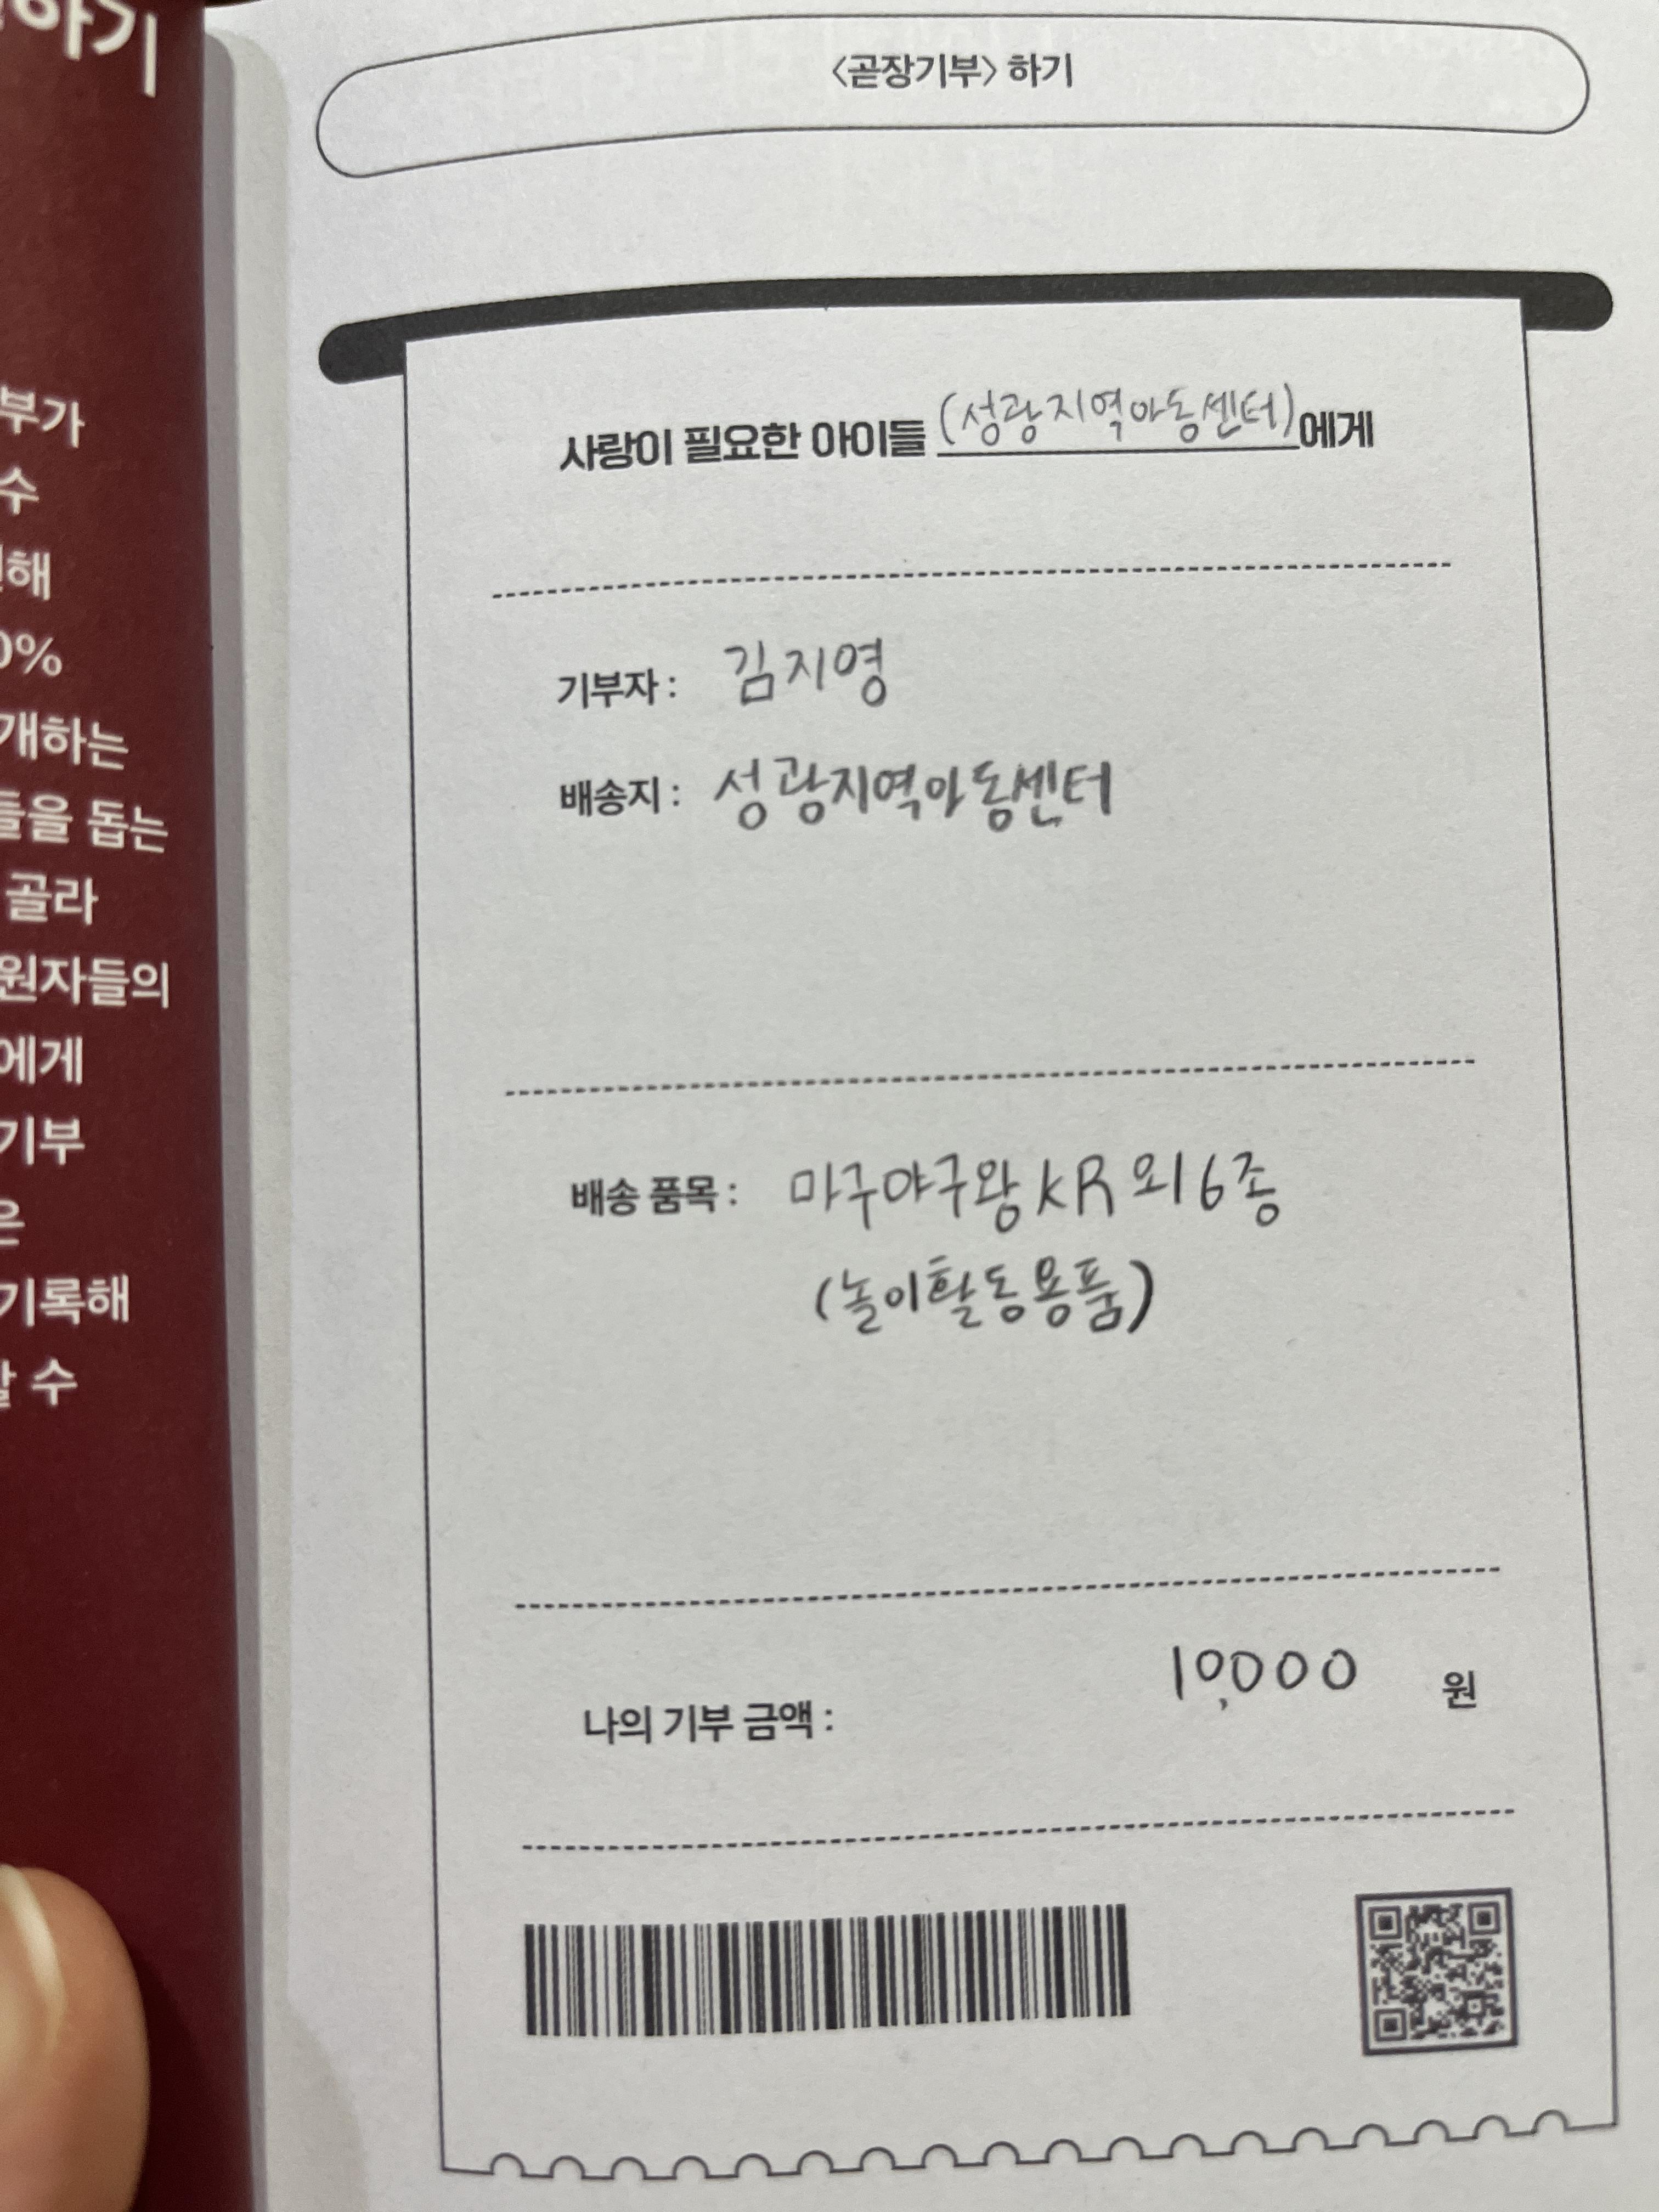 하기
부가
수
해
0%
개하는
들을 돕는
골라
원자들의
에게
기부
은
기록해
수
<곧장기부> 하기
사랑이 필요한 아이들 (성광지역아동센터)에게
기부자 : 김지영
배송지 : 성광지역아동센터
배송 품목 : 마구야구왕KR 외 6종
(놀이활동용품)
나의 기부 금액 : 10,000 원